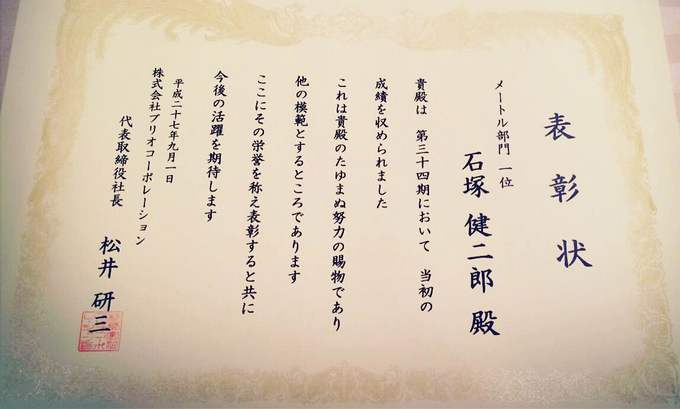 表彰状
メートル部門 一位
石塚 健二郎 殿
貴殿は 第三十四期において 当初の
成績を収められました
これは貴殿のたゆまぬ努力の賜物であり
他の模範とするところであります
ここにその栄誉を称え表彰すると共に
今後の活躍を期待します
平成二十七年九月一日
株式会社プリオコーポレーション
代表取締役社長
松井 研三